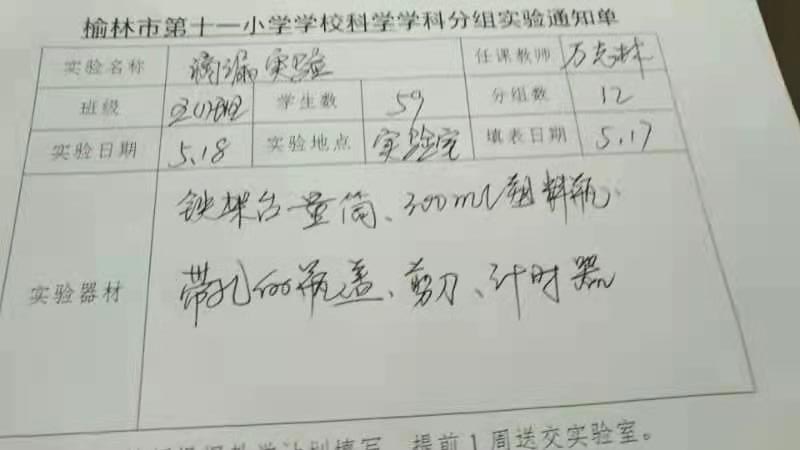 榆林市第十一小学学校科学学科分组实验通知单
实验名称 滴漏实验 任课教师 万克林
班级 五(1)班 学生数 59 分组数 12
实验日期 5.18 实验地点 实验室 填表日期 5.17
铁架台 量筒、300ml塑料瓶、
实验器材
带孔的瓶盖、剪刀、计时器
计划填写 提前1周送交实验室。